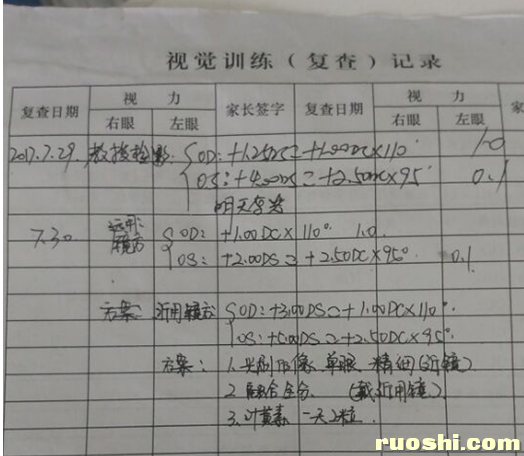 视觉训练（复查）记录
复查日期 视力 家长签字 复查日期 视力 家
右眼 左眼 右眼 左眼
2017.7.29. 散瞳检影: OD: +1.25DS = +1.00DC×110° 1.0
OS: +4.00DS = +2.50DC×95° 0.1
明天复
7.30 远用: 镜方 OD: +1.00DC×110° 1.0
OS: +2.00DS = +2.50DC×95° 0.1
方案: 近用镜方 OD: +3.00DS = +1.00DC×110°
OS: +5.00DS = +2.50DC×95°
方案: 1. 光刷 像 单眼 精细(近镜)
2. 融合 (戴近用镜)
3. 叶黄素 一天2粒
ruoshi.com